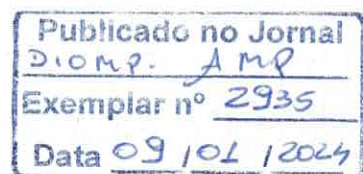 Publicado no Jornal
DIOMP. AMP
Exemplar nº 2935
Data 09 / 01 / 2024